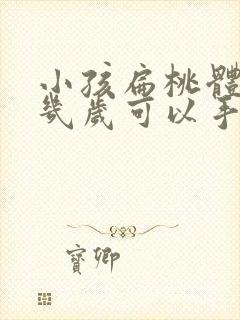 小孩扁桃體
幾歲可以手
寶卿